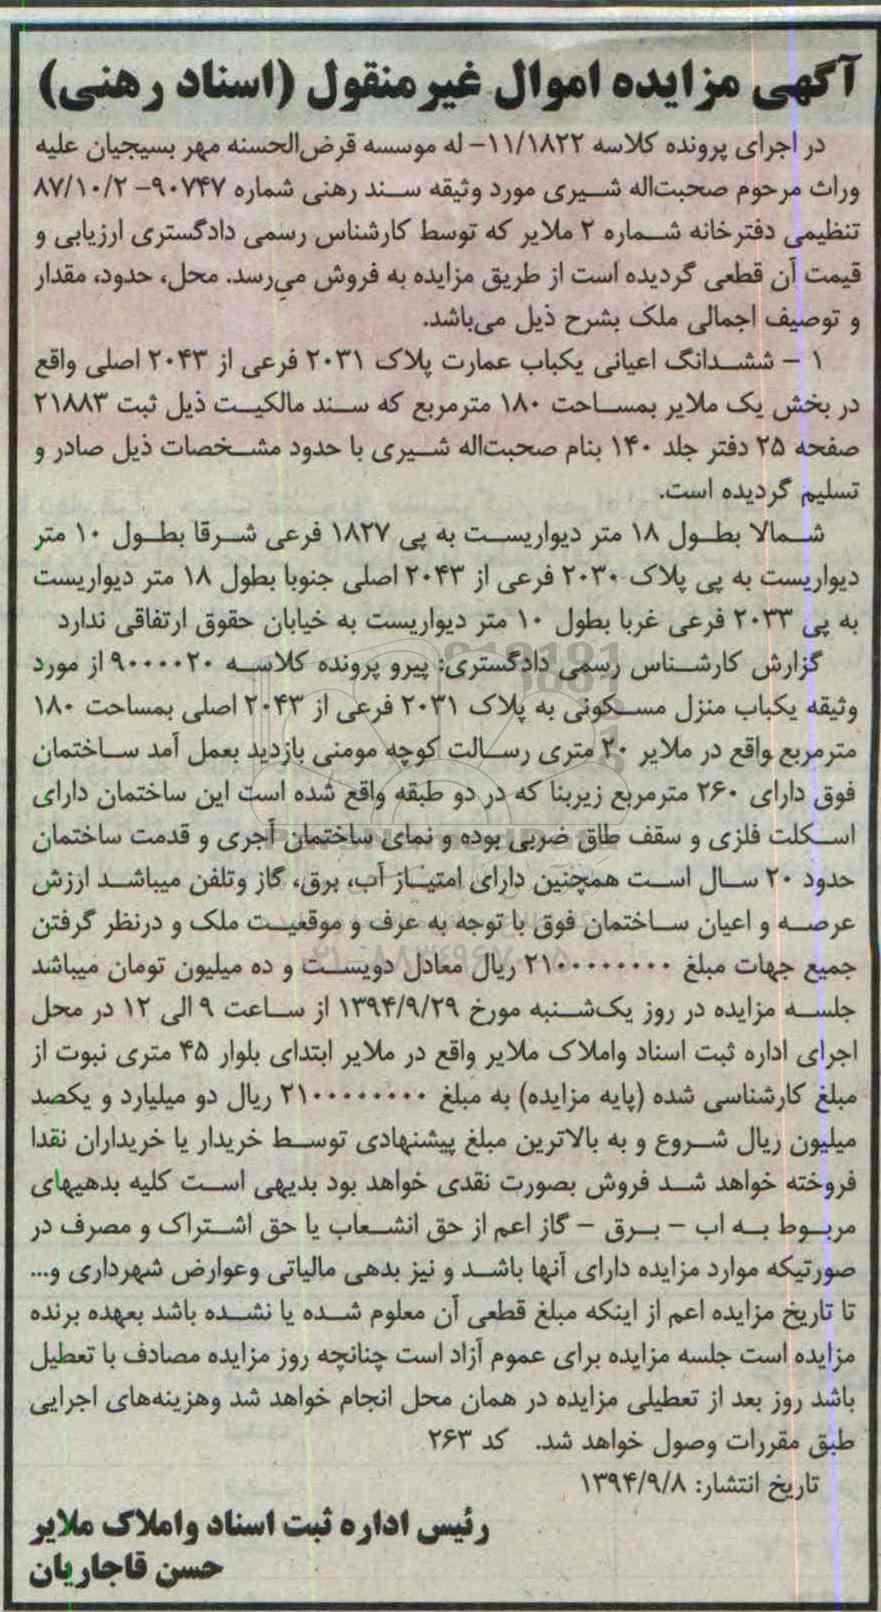 آگهی مزایده اموال غیرمنقول (اسناد رهنی)
در اجرای پرونده کلاسه ۱۱/۱۸۲۲- له موسسه قرض‌الحسنه مهر بسیجیان علیه
وراث مرحوم صحبت‌اله شیری مورد وثیقه سند رهنی شماره ۹۰۷۴۷- ۸۷/۱۰/۲
تنظیمی دفترخانه شماره ۲ ملایر که توسط کارشناس رسمی دادگستری ارزیابی و
قیمت آن قطعی گردیده است از طریق مزایده به فروش می‌رسد. محل، حدود، مقدار
و توصیف اجمالی ملک بشرح ذیل می‌باشد.
۱ - ششدانگ اعیانی یکباب عمارت پلاک ۲۰۳۱ فرعی از ۲۰۴۳ اصلی واقع
در بخش یک ملایر بمساحت ۱۸۰ مترمربع که سند مالکیت ذیل ثبت ۲۱۸۸۳
صفحه ۲۵ دفتر جلد ۱۴۰ بنام صحبت‌اله شیری با حدود مشخصات ذیل صادر و
تسلیم گردیده است.
شمالا بطول ۱۸ متر دیواریست به پی ۱۸۲۷ فرعی شرقا بطول ۱۰ متر
دیواریست به پی پلاک ۲۰۳۰ فرعی از ۲۰۴۳ اصلی جنوبا بطول ۱۸ متر دیواریست
به پی ۲۰۳۳ فرعی غربا بطول ۱۰ متر دیواریست به خیابان حقوق ارتفاقی ندارد
گزارش کارشناس رسمی دادگستری: پیرو پرونده کلاسه ۹۰۰۰۰۲۰ از مورد
وثیقه یکباب منزل مسکونی به پلاک ۲۰۳۱ فرعی از ۲۰۴۳ اصلی بمساحت ۱۸۰
مترمربع واقع در ملایر ۲۰ متری رسالت کوچه مومنی بازدید بعمل آمد ساختمان
فوق دارای ۲۶۰ مترمربع زیربنا که در دو طبقه واقع شده است این ساختمان دارای
اسکلت فلزی و سقف طاق ضربی بوده و نمای ساختمان آجری و قدمت ساختمان
حدود ۲۰ سال است همچنین دارای امتیاز آب، برق، گاز وتلفن میباشد ارزش
عرصه و اعیان ساختمان فوق با توجه به عرف و موقعیت ملک و درنظر گرفتن
جمیع جهات مبلغ ۲۱۰۰۰۰۰۰۰۰ ریال معادل دویست و ده میلیون تومان میباشد
جلسه مزایده در روز یک‌شنبه مورخ ۱۳۹۴/۹/۲۹ از ساعت ۹ الی ۱۲ در محل
اجرای اداره ثبت اسناد واملاک ملایر واقع در ملایر ابتدای بلوار ۴۵ متری نبوت از
مبلغ کارشناسی شده (پایه مزایده) به مبلغ ۲۱۰۰۰۰۰۰۰۰ ریال دو میلیارد و یکصد
میلیون ریال شروع و به بالاترین مبلغ پیشنهادی توسط خریدار یا خریداران نقدا
فروخته خواهد شد فروش بصورت نقدی خواهد بود بدیهی است کلیه بدهیهای
مربوط به اب - برق - گاز اعم از حق انشعاب یا حق اشتراک و مصرف در
صورتیکه موارد مزایده دارای آنها باشد و نیز بدهی مالیاتی وعوارض شهرداری و...
تا تاریخ مزایده اعم از اینکه مبلغ قطعی آن معلوم شده یا نشده باشد بعهده برنده
مزایده است جلسه مزایده برای عموم آزاد است چنانچه روز مزایده مصادف با تعطیل
باشد روز بعد از تعطیلی مزایده در همان محل انجام خواهد شد وهزینه‌های اجرایی
طبق مقررات وصول خواهد شد. کد ۲۶۳
تاریخ انتشار: ۱۳۹۴/۹/۸
رئیس اداره ثبت اسناد واملاک ملایر
حسن قاجاریان